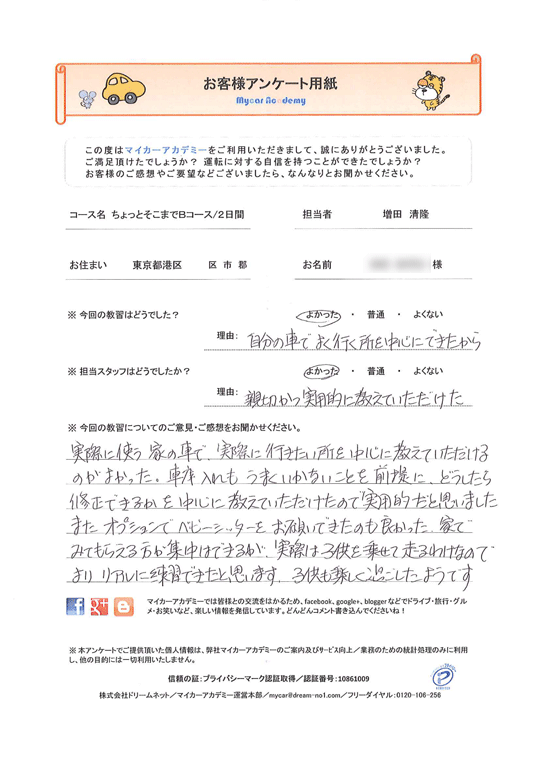 お客様アンケート用紙
Mycar Academy
この度はマイカーアカデミーをご利用いただきまして、誠にありがとうございました。
ご満足頂けたでしょうか？ 運転に対する自信を持つことができたでしょうか？
お客様のご感想やご要望などございましたら、なんなりとお聞かせください。
コース名 ちょっとそこまでBコース/2日間 担当者 増田 清隆
お住まい 東京都港区 区 市 郡 お名前 様
※ 今回の教習はどうでした？ よかった ・ 普通 ・ よくない
理由: 自分の車でよく行く所を中心にできたから
※ 担当スタッフはどうでしたか？ よかった ・ 普通 ・ よくない
理由: 親切かつ実用的に教えていただけた
※ 今回の教習についてのご意見・ご感想をお聞かせください。
実際に使う家の車で、実際に行きたい所を中心に教えていただける
のがよかった。車庫入れもうまくいかないことを前提に、どうしたら
修正できるかを中心に教えていただけたので実用的だと思いました
またオプションでベビーシッターをお願いできたのも良かった。家で
みてもらえる方が集中はできるが、実際は子供を乗せて走るわけなので
よりリアルに練習できたと思います。子供も楽しく過ごしたようです
マイカーアカデミーでは皆様との交流をはかるため、facebook、google+、bloggerなどでドライブ・旅行・グル
メ・お笑いなど、楽しい情報を発信しています。どんどんコメント書き込んでくださいね！
※ 本アンケートでご提供頂いた個人情報は、弊社マイカーアカデミーのご案内及びサービス向上／業務のための統計処理のみに利用
し、他の目的には一切利用いたしません。
信頼の証：プライバシーマーク認証取得／認証番号：10861009
株式会社ドリームネット／マイカーアカデミー運営本部／mycar@dream-no1.com／フリーダイヤル：0120-106-256